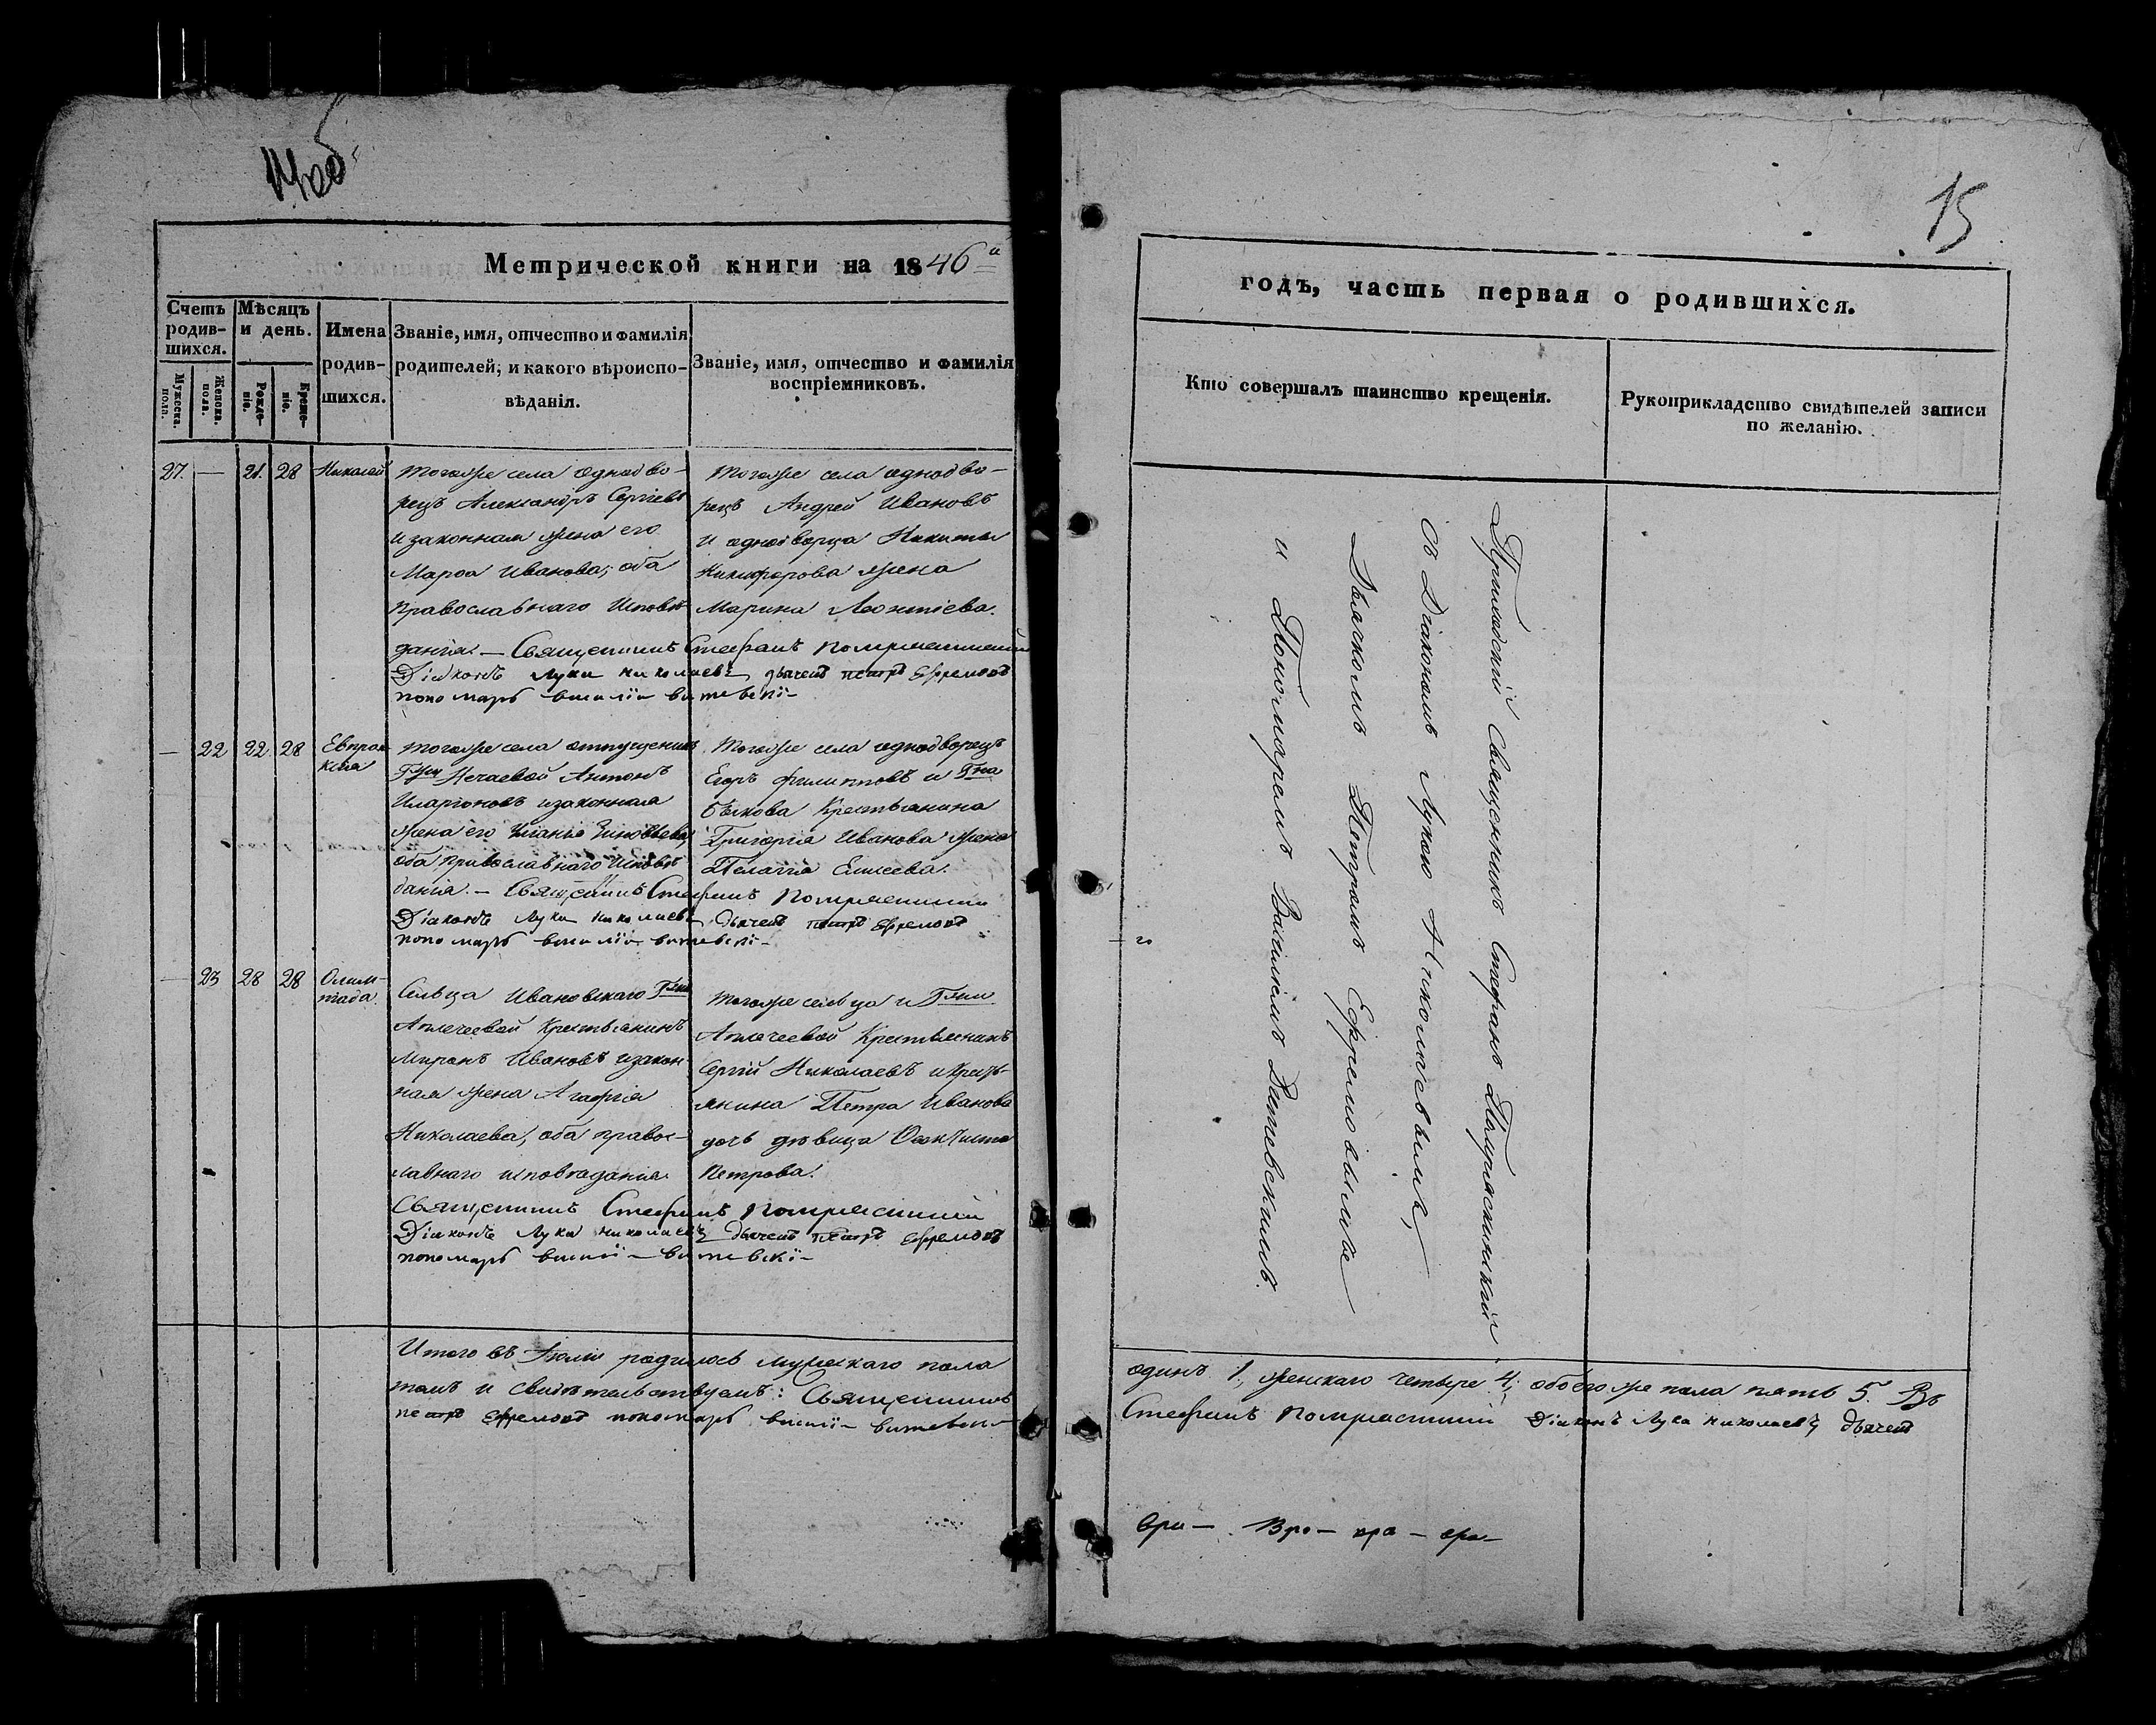 14об.
Метрической книги на 1846й
Счетъ родив-шихся.
Мужеска. пола.
Женска. пола.
Мѣсяцъ и день.
Рожде-ніе.
Креще-ніе.
Имена родив-шихся.
Званіе, имя, отчество и фамилія
родителей, и какого вѣроиспо-
вѣданія.
Званіе, имя, отчество и фамилія
воспріемниковъ.
27. — 21. 28 Николай
тогоже села однодво-
рецъ Александръ Сергіевъ
и законная жена его
Марфа Иванова; оба
православнаго исповѣ-
данія. — Священникъ Стефанъ
Діаконъ Лука Николаевъ дьячекъ петръ Ефремовъ
пономарь василій витевскій
тогоже села однодво-
рецъ Андрей Ивановъ
и однодворца Никиты
Никифорова жена
Марина Леонтіева.
— 22 22 28 Евпраксия
тогоже села отпущеникъ
Гжи Нечаевой Антонъ
Иларіоновъ и законная
жена его
оба православнаго исповѣ-
данія. — Священникъ Стефанъ
Діаконъ Лука Николаевъ дьячекъ петръ Ефремовъ
пономарь василій витевскій
Тогоже села однодворецъ
Егоръ Филиповъ и Гна
Бѣлкова Крестьянина
Григорія Иванова жена
Пелагія Елисеева.
— 23 28 28 Олимпіада.
Сельца Ивановскаго Гжи
Крестьянинъ
Миронъ Ивановъ и закон-
ная жена Агафія
Николаева, оба правос-
лавнаго исповѣданія
Священникъ Стефанъ
Діаконъ Лука Николаевъ дьячекъ петръ Ефремовъ
пономарь василій витевскій
тогоже сельца и Гжи
Крестьянинъ
Сергій Николаевъ и крестъ-
янина Петра Иванова
дочь дѣвица
Петрова.
Итого въ Іюлѣ родилось мужескаго пола
томъ и свидѣтельствуемъ: Священникъ
петръ Ефремовъ пономарь василій витевскій
15
годъ, часть первая о родившихся.
Кто совершалъ таинство крещенія.
Рукоприкладство свидѣтелей записи
по желанію.
Приходскій Священникъ Стефанъ
съ Діакономъ Лукою Николаевымъ,
Дьячкомъ Петромъ Ефремовымъ
и Пономаремъ Василіемъ Витевскимъ.
одинъ 1, женскаго четыре 4, обоего же пола пять 5. Въ
Стефанъ Діаконъ Лука Николаевъ дьячекъ